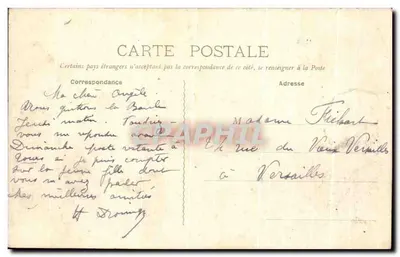 CARTE POSTALE
Certains pays étrangers n'acceptant pas la correspondance de ce côté, se renseigner à la Poste
Correspondance
Adresse
Ma chère Angèle
Nous quittons la Baule
Jeudi matin. Voudriez-
vous me répondre
Dimanche poste restante à
si je puis compter
sur la jeune fille dont
vous m'avez parlé
meilleures amitiés
H
Madame
rue du Vieux Versailles
à Versailles
PAPHIL